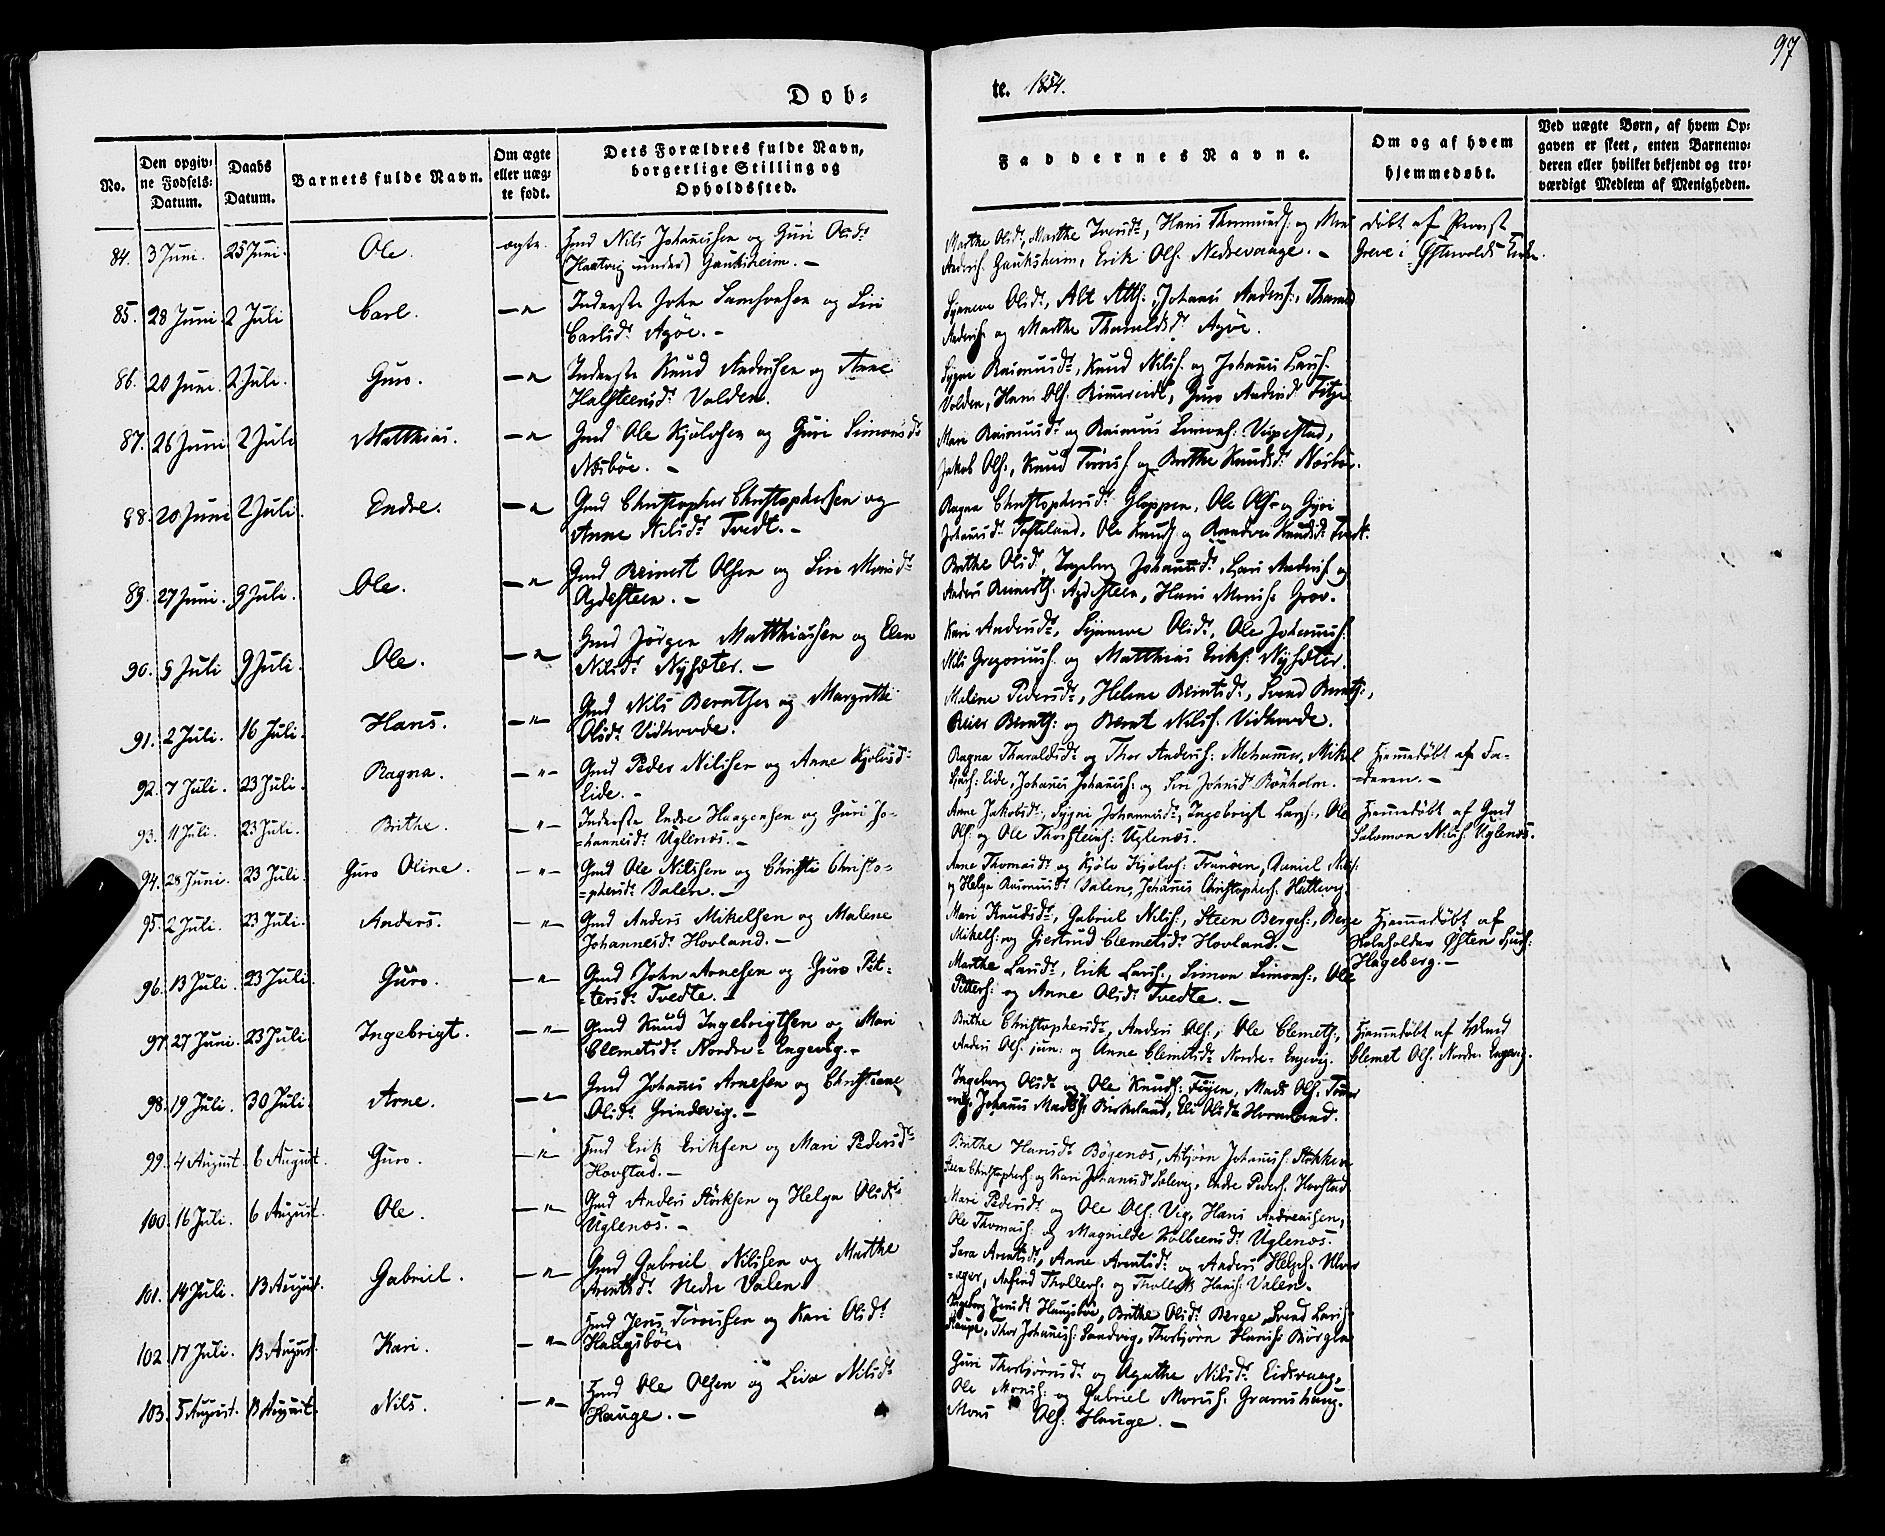 97
Dob-
te. 1854.
No.
Den opgivne Fødsels-Datum.
Daabs Datum.
Barnets fulde Navn.
Om ægte eller uægte født.
Dets Forældres fulde Navn, borgerlige Stilling og Opholdssted.
Faddernes Navne.
Om og af hvem hjemmedøbt.
Ved uægte Børn, af hvem Opgaven er skeet, enten Barnemoderen eller hvilket bekjendt og troværdigt Medlem af Menigheden.
84. 3 Juni. 25 Juni. Ole. ægte. Nils Johannessen og Guri Olsdr
(Hartvig under) Gauksheim. —
Marthe Olsdr, Marthe Iversdr, Hans
Gauksheim, Erik Ols. Nedrevaage. —
døbt af Provst
Greve i
85. 28 Juni. 2 Juli Carl. —"— Inderste John Samsonsen og Siri
Carlsdr Agøe. —
Synneve Olsdr, Alt Johannes Anders.,
og Marthe Tharaldsdr Agøe.
86. 20 Juni. 2 Juli. Guro. —"— Inderste Knud Andersen og Anne
Halsteensdr Valden.
Sygni Rasmusdr, Knud Nils. og Johannes Lars.
Volden, Hans Ols. Rimmereidt, Guro Andersd Fitje
87. 26 Juni 2 Juli Matthias. —"— Gmd Ole Kjølvsen og Guri Simonsdr
Næsbøe. —
Mari Rasmusdr og Rasmus Simons: Vespestad,
Jakob Ols., Knud og Brithe Knudsdr Næsbøe.
88. 20 Juni 2 Juli. Endre. —"— Gmd Christopher Christophersen og
Anne Nilsdr Tvedt. —
Ragna Christophersdr Gloppen, Ole Ols. og Gyri
Johansdr Tofteland, Ole Knuds. og Knudsdr Tvedt.
89. 27 Juni. 9 Juli. Ole. —"— Gmd Reinert Olsen og Siri Monsdr
Agdesteen. —
Brithe Olsdr, Ingeborg Johannesdr, Lars Anders. og
Anders Reinerts. Agdesteen, Hans Mons. Grov.
90. 5 Juli 9 Juli. Ole. —"— Gmd Jørgen Matthiassen og Elen
Nilsdr Nysæter. —
Kari Andersdr, Synneve Olsdr, Ole Johannes.
Nils Gregorius. og Matthias Eriks. Nysæter.
91. 2 Juli. 16 Juli. Hans. —"— Gmd Nils Berntsen og Margrethe
Olsdr Vidhovde.
Malene Pedersdr, Helene Berntsdr, Svend Bernts.,
Reier Bernts: og Bernt Nils. Vidhovde.
92. 7 Juli. 23 Juli. Ragna. —"— Gmd Peder Nilssen og Anne Kjølvsdr
Eide. —
Ragna Tharaldsdr og Thor Anders. Mehammer, Mikel
Lars: Eide, Johannes Johannes. og Siri Johnsd Rønholm.
Hjemmedøbt af Fa-
-deren. —
93. 4 Juli. 23 Juli. Brithe. —"— Inderste Endre Haagensen og Guri Jo-
-hannesdr Uglenæs. —
Anne Jakobsdr, Sygni Johannesdr, Ingebrigt Lars., Ole
Ols: og Ole Thorsteins: Uglenæs.
Hjemmedøbt af Gmd
Salomon Nils. Uglenæs.
94. 28 Juni. 23 Juli. Guro Oline. —"— Gmd Ole Nilssen og Christi Christo-
-phersdr Dalen. —
Anne Thomasdr og Kjøle Kjølvs: Tranøen, Daniel Nils:
og Helga Rasmusdr Dalen, Johannes Christophers.
95. 2 Juli. 23 Juli. Anders. —"— Gmd Anders Mikelsen og Malene
Johannesdr Hovland. —
Mari Knudsdr, Gabriel Nils:, Steen Berges:, Berge
Mikels: og Giertrud Clemetsdr Hovland. —
Hjemmedøbt af
Kirkeholder Østen
Hageberg. —
96. 13 Juli. 23 Juli. Guro. —"— Gmd John Arnesen og Guro Pet-
-tersdr Tvedte. —
Marthe Larsdr, Erik Lars:, Simon Simons:, Ole
Petters: og Anne Olsdr Tvedte. —
97. 27 Juni. 23 Juli. Ingebrigt. —"— Gmd Knud Ingebrigtsen og Mari
Clemetsdr Nordre-Engevig. —
Brithe Christophersdr, Anders Ols:, Ole Clemets:,
Anders Ols. jun: og Anne Clemetsdr Nordre-Engevig.
Hjemmedøbt af
Clemet Ols. Nordre Engevig.
98. 19 Juli. 30 Juli. Arne. —"— Gmd Johannes Arnesen og Christiane
Olsdr Grindevig. —
Ingeborg Olsdr og Ole Knuds: Føyen, Mads Ols.
Johannes Mads: Birkeland, Eli Olsdr Horneland.
99. 4 August. 6 August. Guro. —"— Erik Eriksen og Mari Pedersdr
Hovstad. —
Brithe Hansdr Bøgenæs, Asbjørn Johannes.
Christophers. og Kari Johannesdr Salevig, Endre Peders. Hovstad
100. 16 Juli. 6 August. Ole. —"— Gmd Anders Størksen og Helga Olsdr
Uglenæs. —
Mari Pedersdr og Ole Ols. Vig, Hans Andreassen,
Ole Thomas: og Magnilde Kolbeensdr Uglenæs.
101. 14 Juli. 13 August. Gabriel. —"— Gmd Gabriel Nilssen og Marthe
Arentsdr Nedre Valen
Sara Arentsdr, Anne Arentsdr og Anders Helges.
-ager, Thollevs. og Thollev Hans. Valen.
102. 17 Juli. 13 August. Kari. —"— Jens Tørrissen og Kari Olsdr
Haugsbøe.
Ingeborg Jensdr Haugsbøe, Brithe Olsdr Berge, Svend Lars.
Staupe, Thor Johannes. Sandvig, Thorbjørn Hans.
103. 5 August. 13 August. Nils. —"— Ole Olsen og Nilsdr
Hauge. —
Guri Thorbjørnsdr og Agathe Nilsdr Eidsvaag,
Ole Mons: og Gabriel Mons. Gramshaug.
Mons Ols. Hauge. —